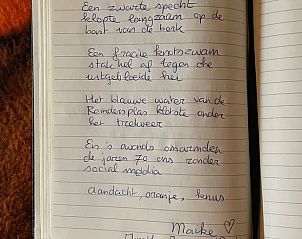 Een zwarte specht
klopte langzaam op de
bast van de berk
Een fragile knotszwam
stak hel af tegen de
uitgebloeide hei
Het blauwe water van de
klotste onder
het trekweer
En 's avonds omarmden
de jaren 70 ons zonder
social media
Aandacht, oranje, Venus
Maike ♡